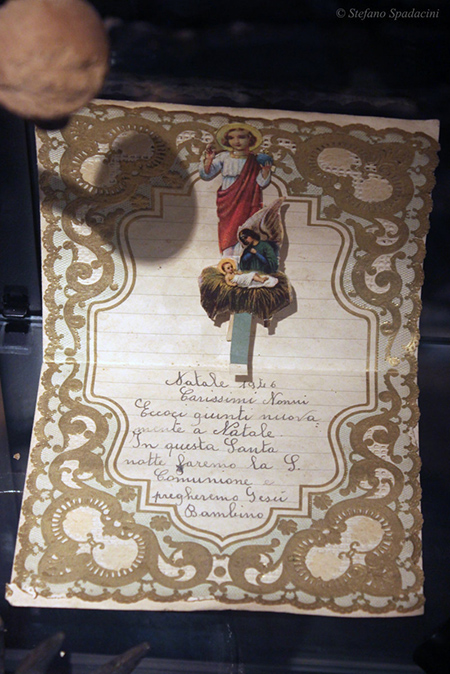 © Stefano Spadacini
Natale 1946
Carissimi Nonni
Eccoci giunti nuova
mente a Natale.
In questa Santa
notte faremo la S.
Comunione e
pregheremo Gesù
Bambino